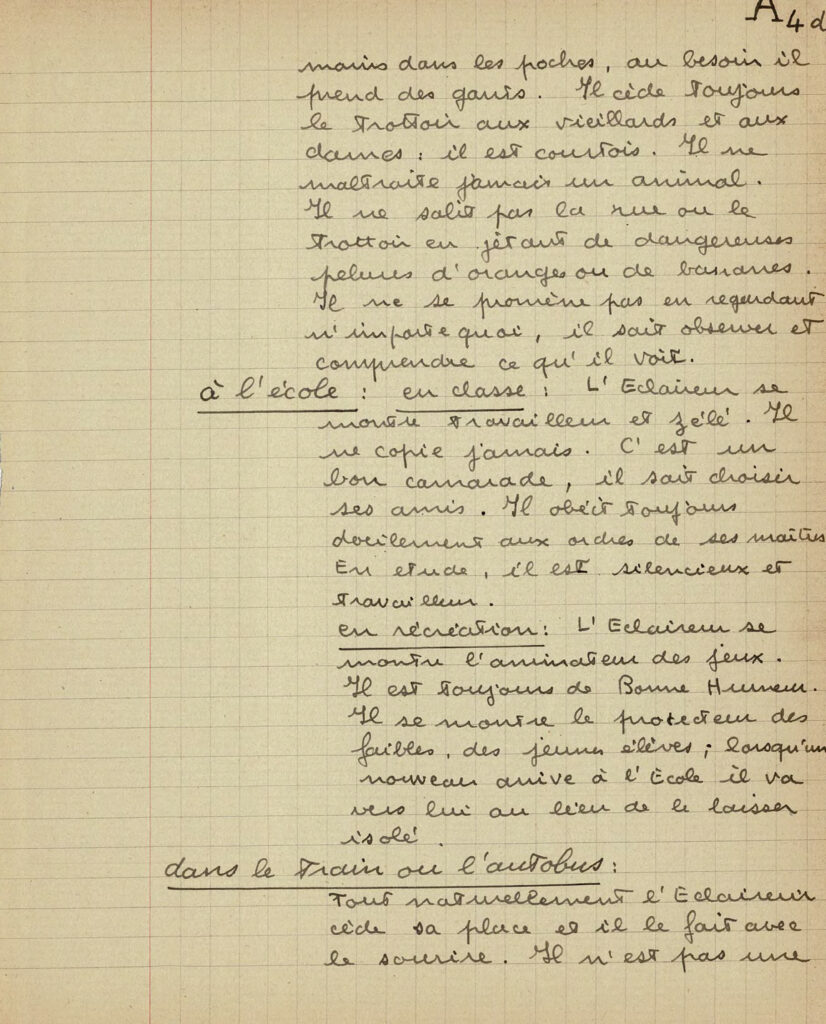 A4d
mains dans les poches, au besoin il
prend des gants. Il cède toujours
le trottoir aux vieillards et aux
dames : il est courtois. Il ne
maltraite jamais un animal.
Il ne salit pas la rue ou le
trottoir en jétant de dangereuses
pelures d'oranges ou de bananes.
Il ne se promène pas en regardant
n'importe quoi, il sait observer et
comprendre ce qu'il voit.
à l'école : en classe : L'Eclaireur se
montre travailleur et zélé. Il
ne copie jamais. C'est un
bon camarade, il sait choisir
ses amis. Il obéit toujours
docilement aux ordres de ses maîtres
En etude, il est silencieux et
travailleur.
en récréation : L'Eclaireur se
montre l'animateur des jeux.
Il est toujours de Bonne Humeur.
Il se montre le protecteur des
faibles, des jeunes élèves ; lorsqu'un
nouveau arrive à l'Ecole il va
vers lui au lieu de le laisser
isolé.
dans le train ou l'autobus :
Tout naturellement l'Eclaireur
cède sa place et il le fait avec
le sourire. Il n'est pas une